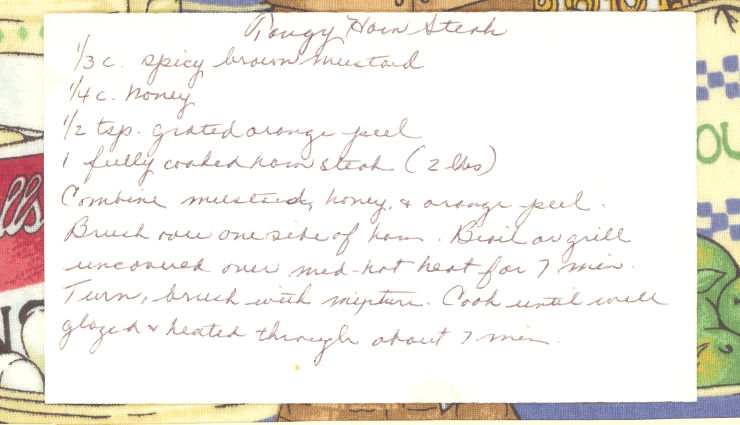 Tangy Ham Steak
1/3 c. spicy brown mustard
1/4 c. honey
1/2 tsp. grated orange peel
1 fully cooked ham steak (2 lbs)
Combine mustard, honey, & orange peel.
Brush over one side of ham. Broil or grill
uncovered over med-hot heat for 7 min.
Turn, brush with mixture. Cook until well
glazed & heated through about 7 min.
lls
OU